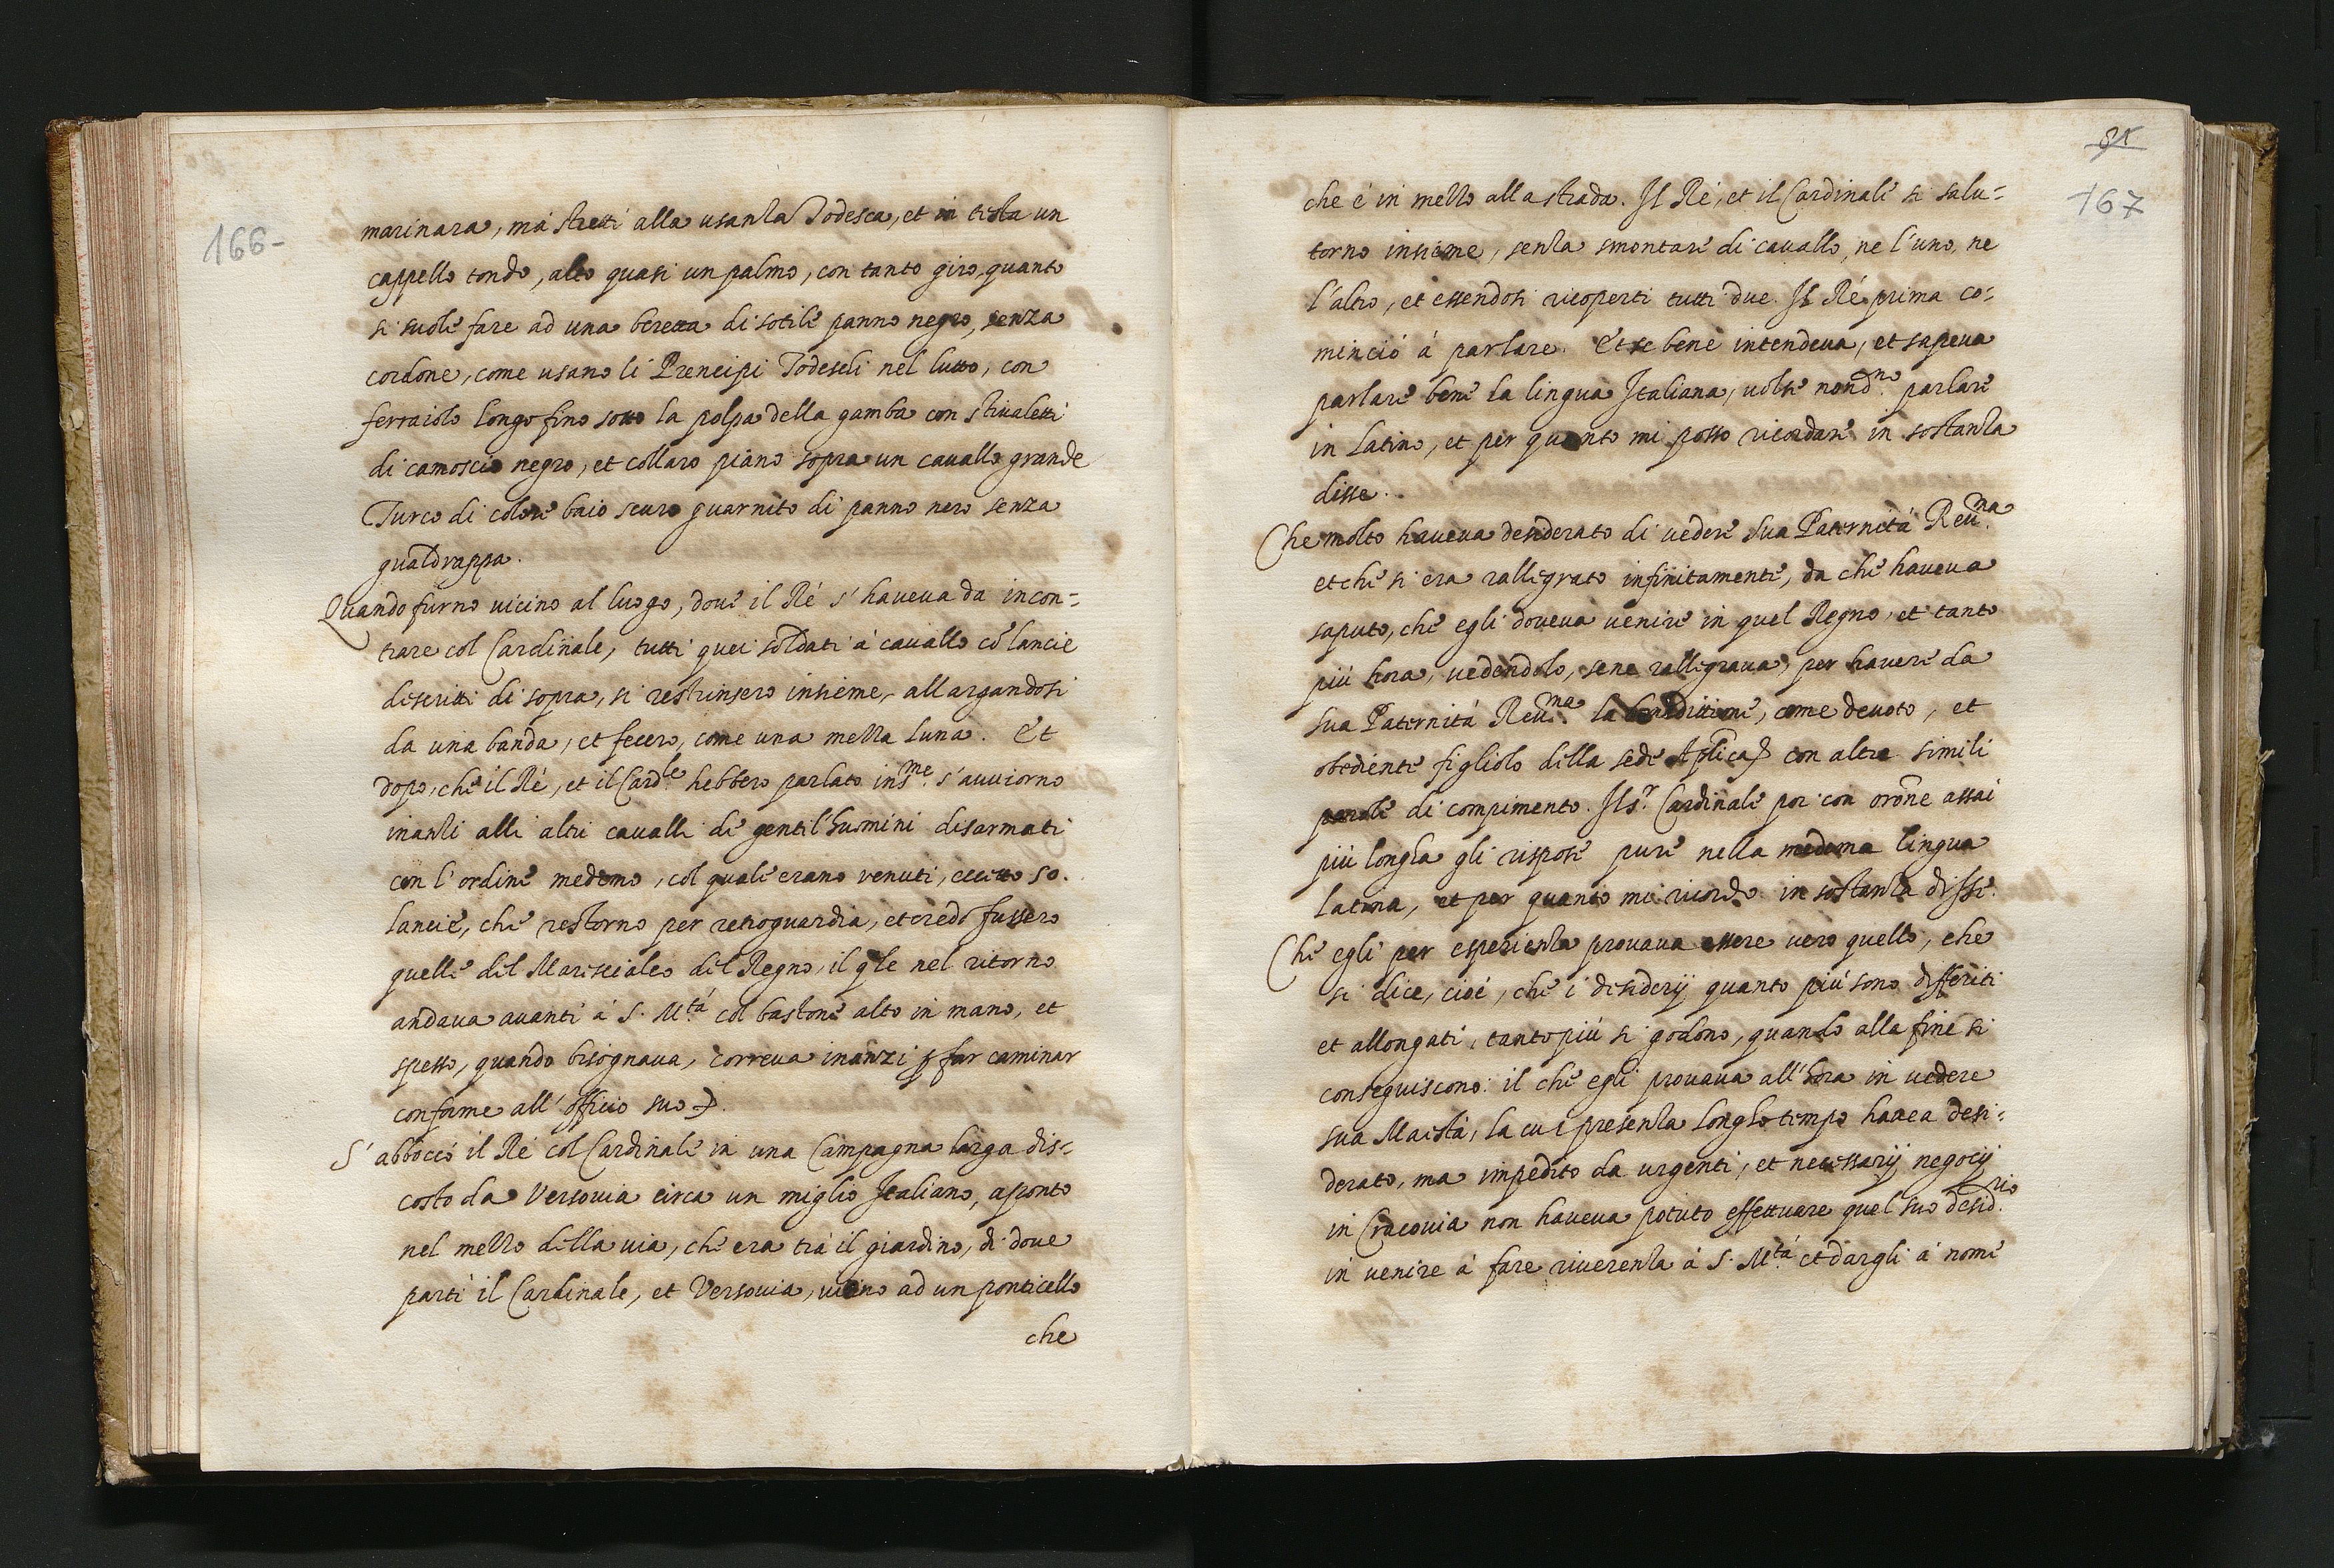 166-
marinara, má stretti alla usanza Todesca, et in testa un
cappello tondo, alto quasi un palmo, con tanto giro, quanto
si suole fare ad una beretta di sotile panno negro, senza
cordone, come usano li Prencipi Todeschi nel lutto, con
ferraiolo longo fino sotto la polpa della gamba con stivaletti
di camoscio negro, et collaro piano sopra un cauallo grande
Turco di colore baio scuro guarnito di panno nero senza
gualdrappa.
Quando furno uicino al luogo, doue il Ré s'haueua da incon=
trare col Cardinale, tutti quei soldati á cauallo cõ lancie
descritti di sopra, si restrinsero insieme, allargandosi
da una banda, et fecero, come una mezza luna. Et
dopo, che il Ré, et il Card.le hebbero parlato ins.me s'auuiorno
inanzi alli altri caualli de gentil'huomini disarmati
con l'ordine medemo, col quale erano venuti, eccetto 50.
lancie, che restorno per retroguardia, et credo fussero
quelle del Maresciales del Regno, il qle nel ritorno
andaua auanti á S. M.tá col bastone alto in mano, et
spesso, quando bisognaua, correua inanzi ꝑ far caminar
conforme all'officio suo.
S'abboccó il Ré col Cardinale in una Campagna larga dis=
costo da Versouia circa un miglio Italiano, aponto
nel mezzo della uia, che era trá il giardino, di doue
partí il Cardinale, et Versouia, uicino ad un ponticello
che
81
167
che é in mezzo alla strada. Il Ré, et il Cardinale si salu=
torno insieme, senza smontare di cauallo, ne l'uno, ne
l'altro, et essendosi ricoperti tutti due. Il Ré prima co=
minció á parlare. Et se bene intendeua, et sapeua
parlare bene la lingua Italiana, uolse nond.no parlare
in Latino, et per quanto mi posso ricordare in sostanza
disse.
Che molto haueua desiderato di uedere sua Paternitá Reu.ma
et che si era rallegrato infinitamente, da che haueua
saputo, che egli doueua uenire in quel Regno, et tanto
piú hora, uedendolo, sene rallegraua, per hauere da
sua Paternitá Reu.ma la benedittione, come deuoto, et
obediente figliolo della sede Aplica con altre simili
parole di compimento. Il S.r Cardinale poi con orõne assai
piú longha gli rispose pure nella medema lingua
latina, et per quanto mi ricordo in sostanza disse.
Che egli per esperienza prouaua essere uero quello, che
si dice, cioé, che i desiderij quanto piú sono differiti
et allongati, tanto piú si godono, quando alla fine si
conseguiscono: il che egli prouaua all'hora in uedere
sua Maestá, la cui presenza longho tempo hauea desi=
derato, ma impedito da urgenti, et necessarij negocij
in Cracouia non haueua potuto effettuare quel suo desid.rio
in uenire á fare riuerenza á S. M.tá et dargli á nome